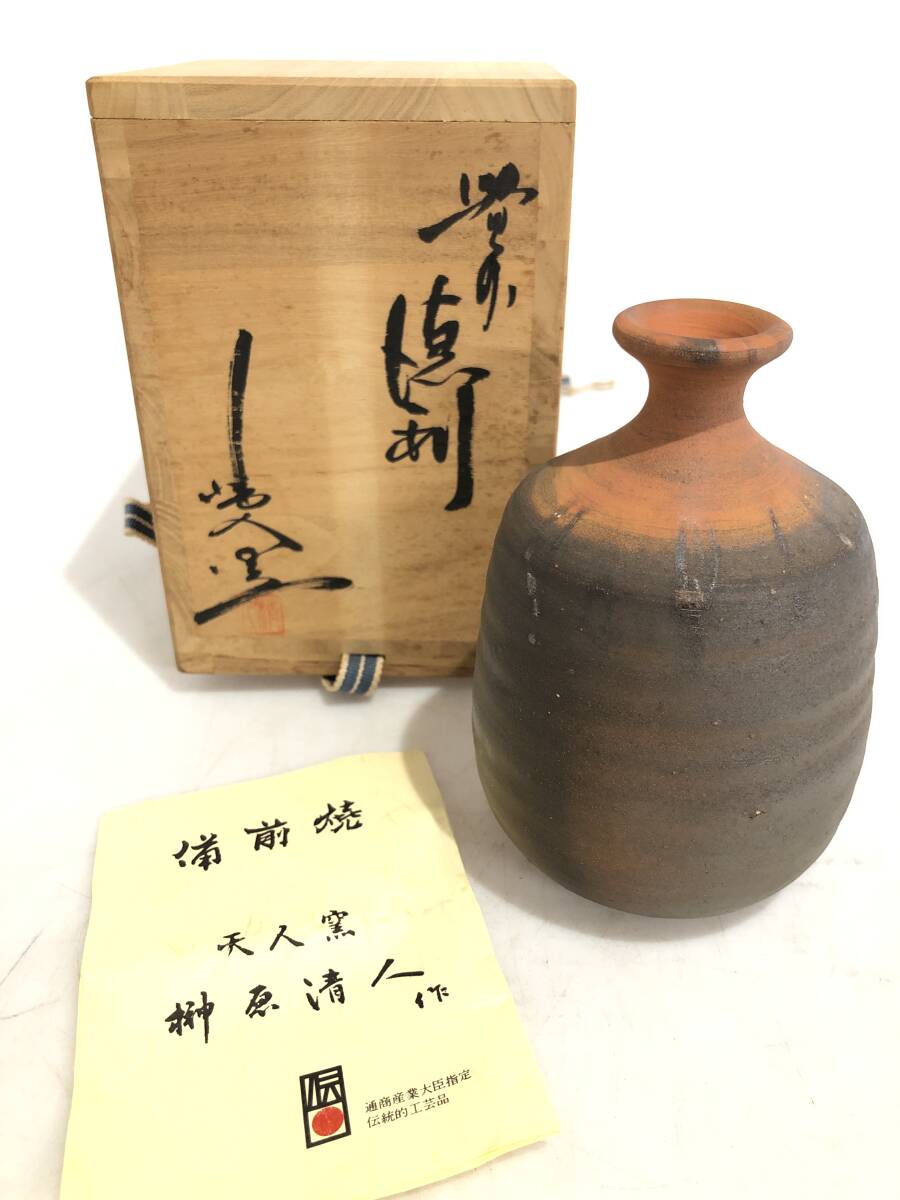 徳利
備前焼
天人窯
榊原清人作
伝
通商産業大臣指定
伝統的工芸品